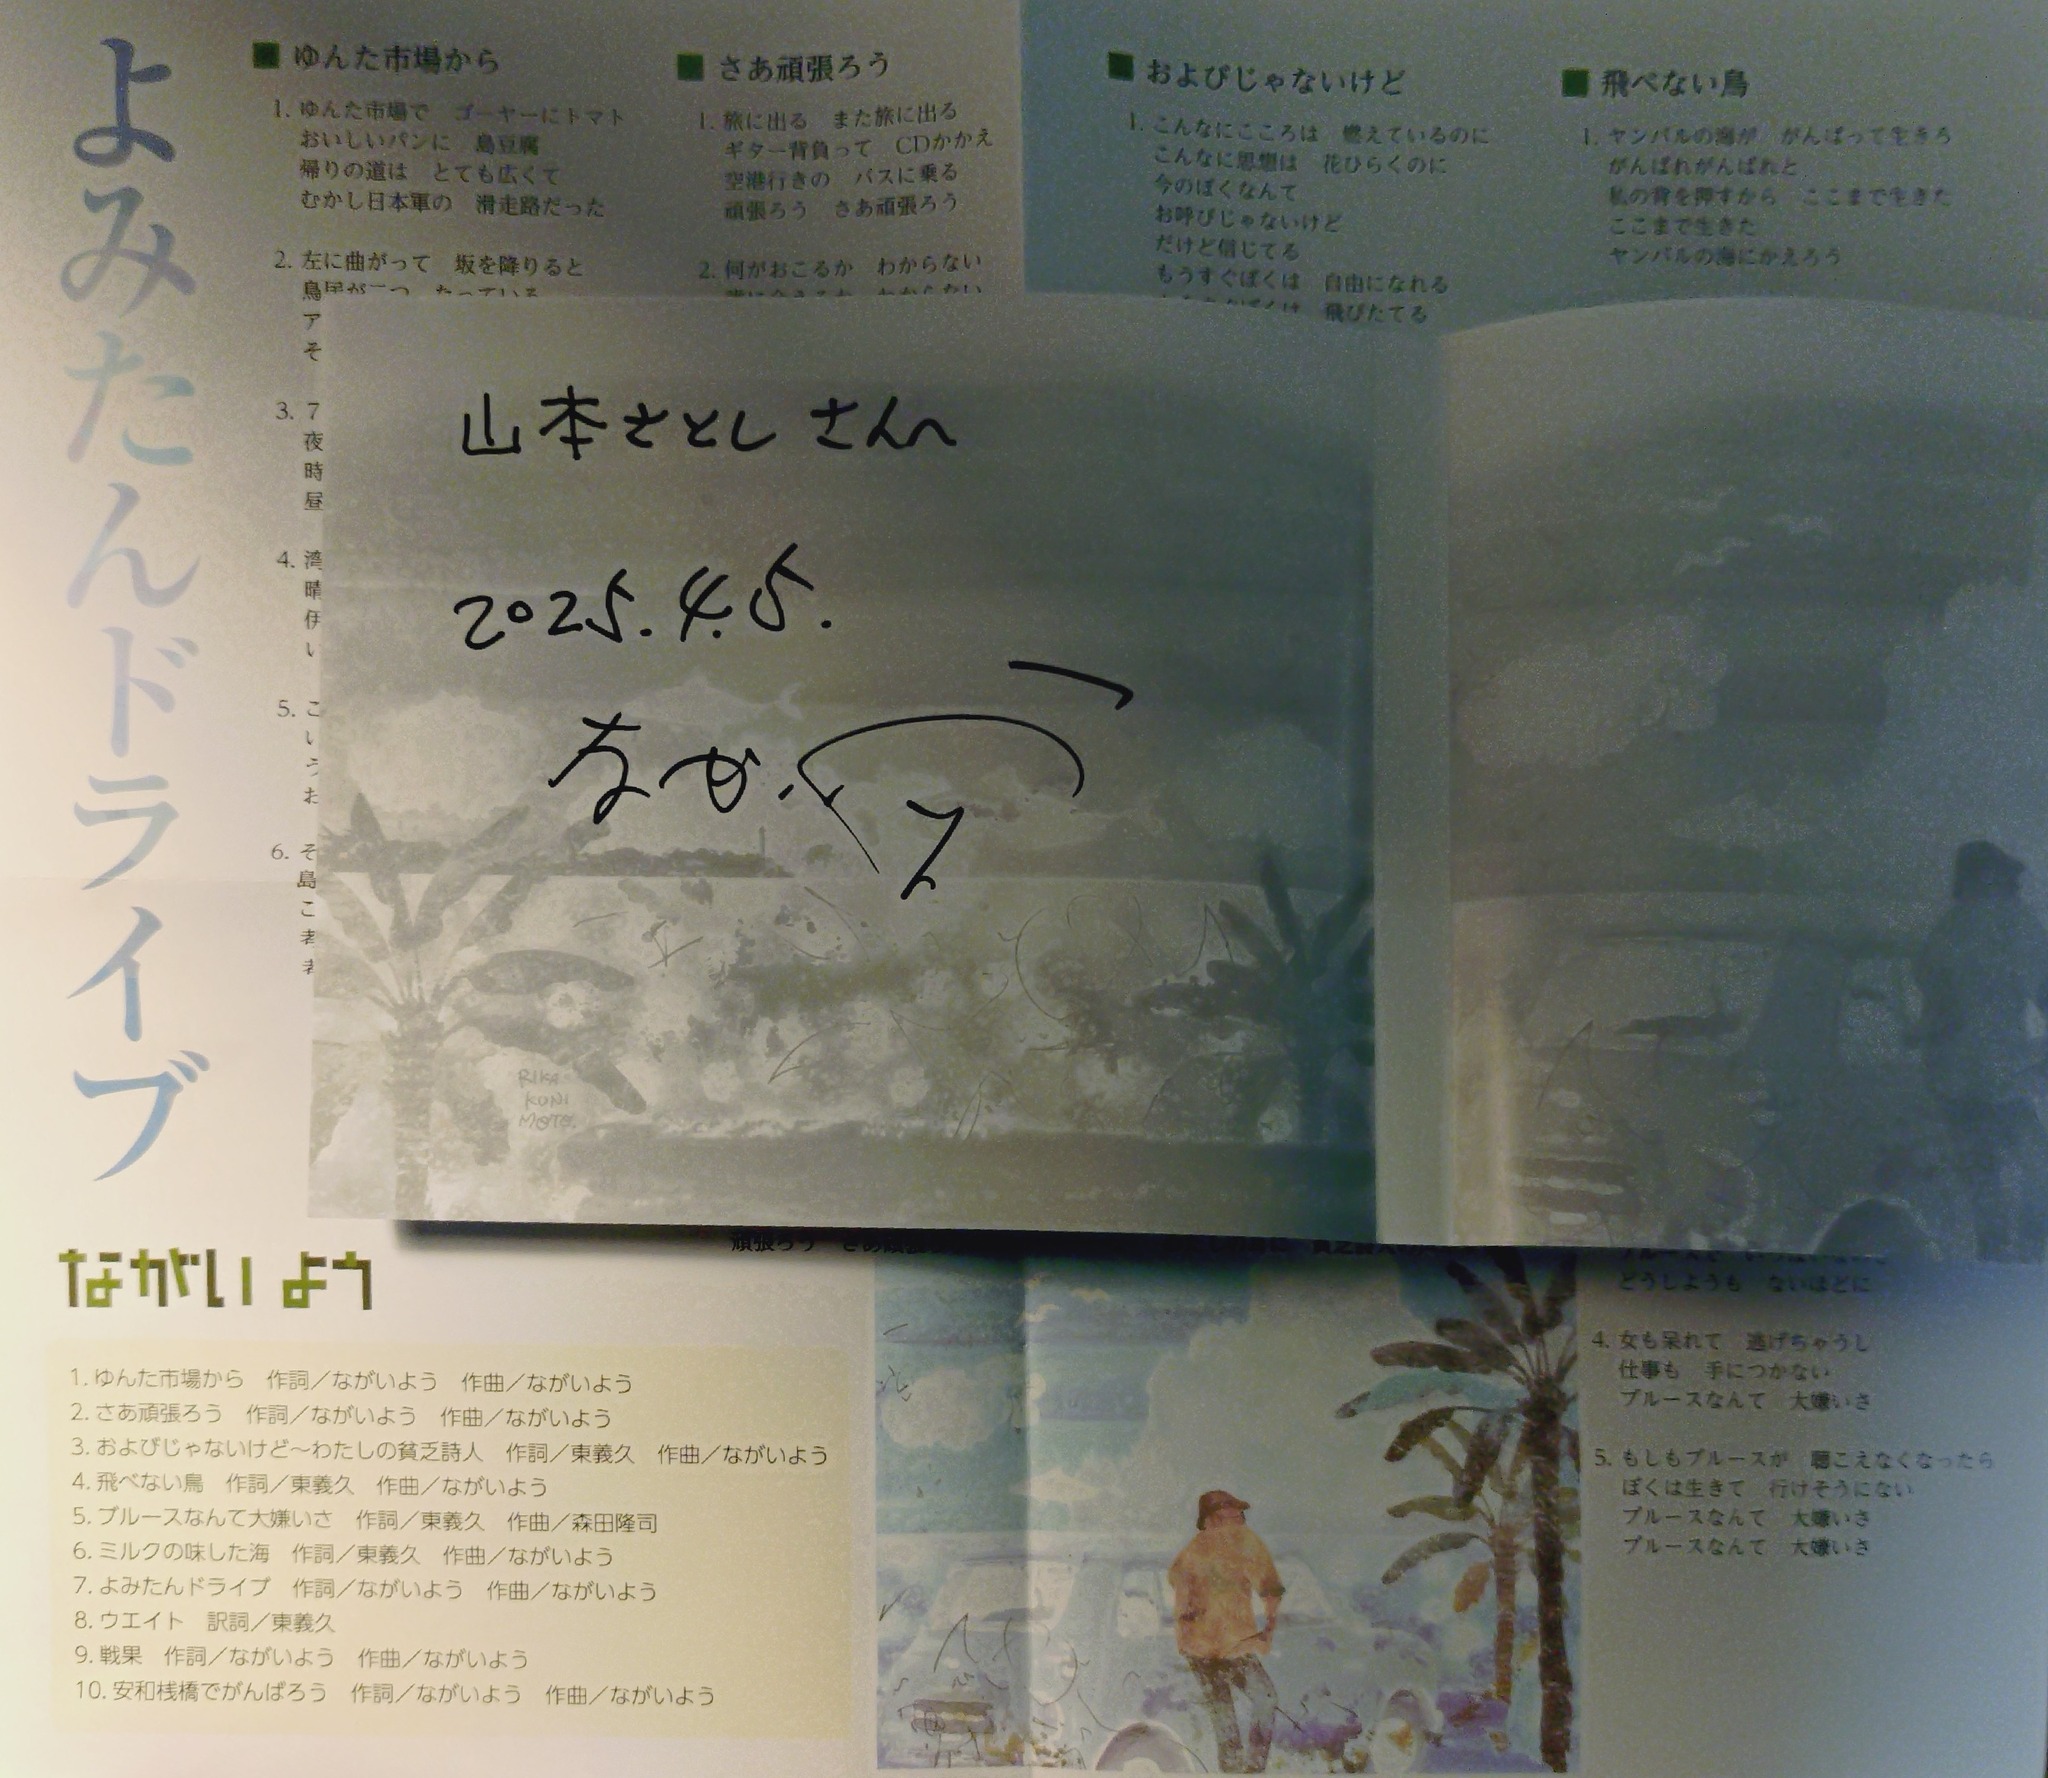 よみたんドライブ
ながい よう
■ ゆんた市場から
1. ゆんた市場で　ゴーヤーにトマト
おいしいパンに　島豆腐
帰りの道は　とても広くて
むかし日本軍の　滑走路だった
2. 左に曲がって　坂を降りると
鳥居が二つ　たっている
ア
そ
3. 7
夜
時
昼
4. 湾
晴
い
5. こ
い
う
お
6. そ
島
こ
■ さあ頑張ろう
1. 旅に出る　また旅に出る
ギター背負って　CDかかえ
空港行きの　バスに乗る
頑張ろう　さあ頑張ろう
2. 何がおこるか　わからない
わからない
頑張ろう　さあ頑張
■ およびじゃないけど
1. こんなにこころは　燃えているのに
こんなに思想は　花ひらくのに
今のぼくなんて
お呼びじゃないけど
だけど信じてる
もうすぐぼくは　自由になれる
もうすぐぼくは　飛びたてる
■ 飛べない鳥
1. ヤンバルの海が　がんばって生きろ
がんばれがんばれと
私の背を押すから　ここまで生きた
ここまで生きた
ヤンバルの海にかえろう
山本さとしさんへ
2025.4.5.
RIKA
KUNI
MOTO.
どうしようも　ないほどに
4. 女も呆れて　逃げちゃうし
仕事も　手につかない
ブルースなんて　大嫌いさ
5. もしもブルースが　聴こえなくなったら
ぼくは生きて　行けそうにない
ブルースなんて　大嫌いさ
ブルースなんて　大嫌いさ
1. ゆんた市場から　作詞／ながいよう　作曲／ながいよう
2. さあ頑張ろう　作詞／ながいよう　作曲／ながいよう
3. およびじゃないけど～わたしの貧乏詩人　作詞／東義久　作曲／ながいよう
4. 飛べない鳥　作詞／東義久　作曲／ながいよう
5. ブルースなんて大嫌いさ　作詞／東義久　作曲／森田隆司
6. ミルクの味した海　作詞／東義久　作曲／ながいよう
7. よみたんドライブ　作詞／ながいよう　作曲／ながいよう
8. ウエイト　訳詞／東義久
9. 戦果　作詞／ながいよう　作曲／ながいよう
10. 安和桟橋でがんばろう　作詞／ながいよう　作曲／ながいよう